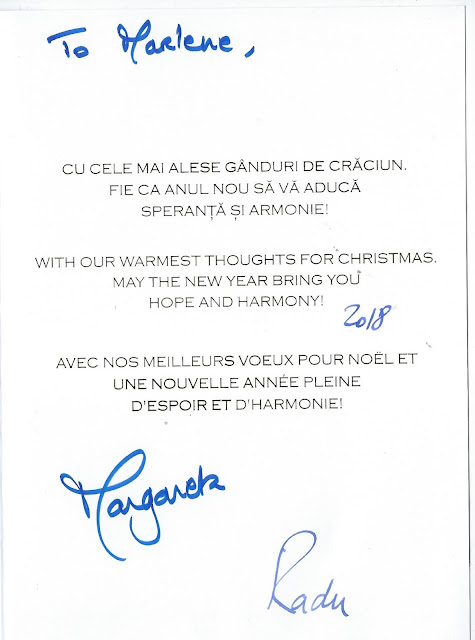 To Marlene,
CU CELE MAI ALESE GÂNDURI DE CRĂCIUN.
FIE CA ANUL NOU SĂ VĂ ADUCĂ
SPERANȚĂ ȘI ARMONIE!
WITH OUR WARMEST THOUGHTS FOR CHRISTMAS.
MAY THE NEW YEAR BRING YOU
HOPE AND HARMONY!
2018
AVEC NOS MEILLEURS VOEUX POUR NOËL ET
UNE NOUVELLE ANNÉE PLEINE
D'ESPOIR ET D'HARMONIE!
Margareta
Radu